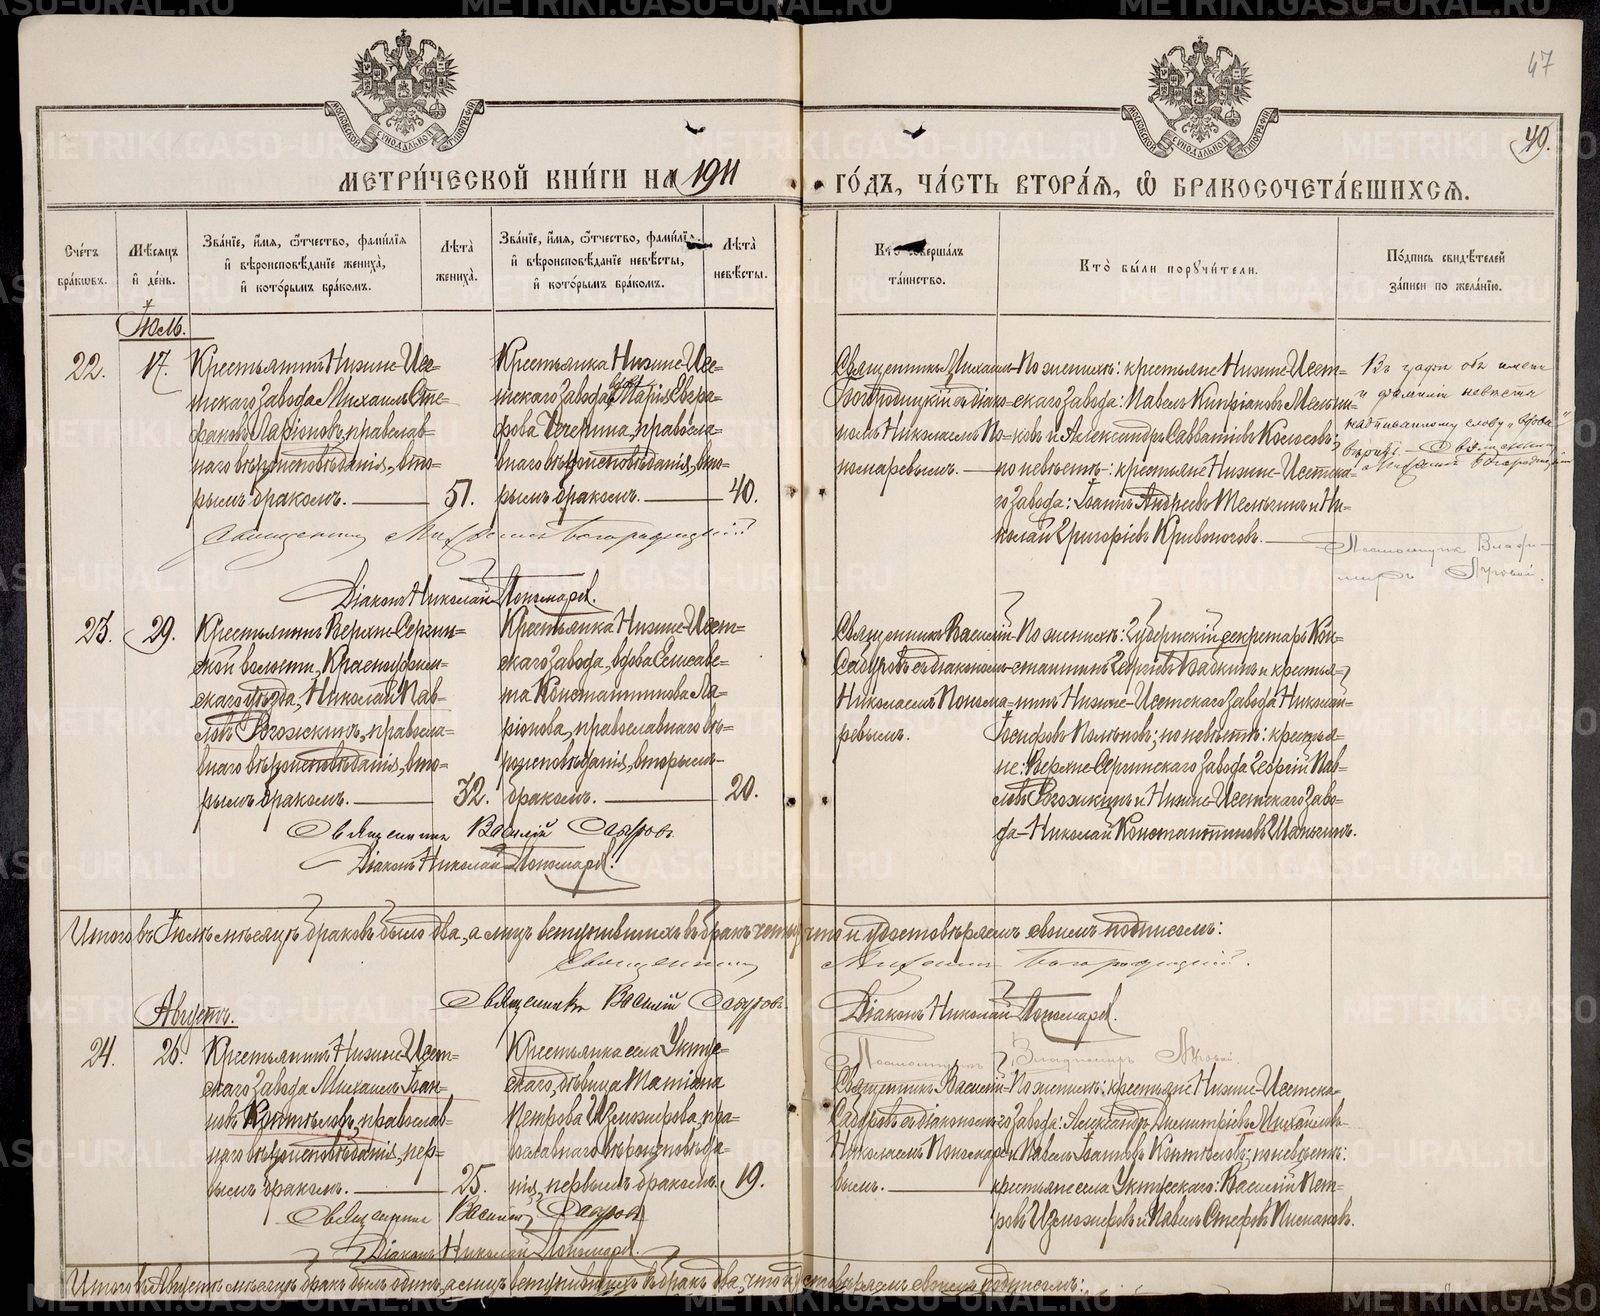 47
40.
МЕТРИ́ЧЕСКОЙ КНИ́ГИ НА 1911 ГО́ДЪ, ЧА́СТЬ ВТОРА́Я, Ѡ БРАКОСОЧЕТА́ВШИХСЯ.
Сче́тъ бра́кѡвъ.
Мѣ́сяцъ и҆ де́нь.
Зва́нїе, и҆́мя, ѻ҆́тчество, фами́лїя и҆ вѣроисповѣ́данїе жениха̀, и҆ кото́рымъ бра́комъ.
Лѣ́та жениха̀.
Зва́нїе, и҆́мя, ѻ҆́тчество, фами́лїя и҆ вѣроисповѣ́данїе невѣ́сты, и҆ кото́рымъ бра́комъ.
Лѣ́та невѣ́сты.
Кто̀ соверша́лъ та́инство.
Кто̀ бы́ли поручи́тели.
По́дпись свидѣ́телей за́писи по жела́нїю.
Іюль.
22.
17.
Крестьянинъ Нижне-Исе-
тскаго завода Михаилъ Сте-
фановъ Ларіоновъ, православ-
наго вѣроисповѣданія, вто-
рымъ бракомъ.
51.
Крестьянка Нижне-Исе-
тскаго завода вдова Марія Евгра-
фова Чечулина, правосла-
внаго вѣроисповѣданія, вто-
рымъ бракомъ.
40.
Священникъ Михаилъ
Богородицкій съ діако-
номъ Николаемъ По-
номаревымъ.
По женихѣ: крестьяне Нижне-Исет-
скаго завода: Павелъ Кипріановъ Мельни-
ковъ и Александръ Савватіевъ Колясовъ;
по невѣстѣ: крестьяне Нижне-Исетска-
го завода: Іоаннъ Андреевъ Телегинъ и Ни-
колай Григорьевъ Кривоноговъ.
Въ графѣ объ имени
и фамиліи невѣсты
надписанному слову „вдова"
вѣрить. Священникъ
Михаилъ Богородицкій
Священникъ Михаилъ Богородицкій
Псаломщикъ Влади-
миръ Луговой.
Діаконъ Николай Пономаревъ.
23.
29.
Крестьянинъ Верхне-Сергин-
ской волости, Красноуфим-
скаго уѣзда, Николай Пав-
ловъ Рогожкинъ, правосла-
внаго вѣроисповѣданія, вто-
рымъ бракомъ.
32.
Крестьянка Нижне-Исет-
скаго завода, вдова Елисаве-
та Константинова Ла-
ріонова, православнаго вѣ-
роисповѣданія, вторымъ
бракомъ.
20.
Священникъ Василій
Сабуровъ съ діакономъ
Николаемъ Понома-
ревымъ.
По женихѣ: Губернскій секретарь Кон-
стантинъ Георгіевъ Бабкинъ и крестья-
нинъ Нижне-Исетскаго завода Николай
Іосифовъ Полѣновъ; по невѣстѣ: крестья-
не: Верхне-Сергинскаго завода Георгій Пав-
ловъ Рогожкинъ и Нижне-Исетскаго заво-
да Николай Константиновъ Шаньгинъ.
Священникъ Василій Сабуровъ
Діаконъ Николай Пономаревъ.
Итого въ Іюлѣ мѣсяцѣ браковъ было два, а лицъ вступившихъ въ бракъ четыре, что и удостовѣряемъ своимъ подписомъ:
Священникъ Михаилъ Богородицкій.
Священникъ Василій Сабуровъ
Діаконъ Николай Пономаревъ.
Псаломщикъ Владимиръ Луговой.
Августъ.
24.
26.
Крестьянинъ Нижне-Исет-
скаго завода Михаилъ Іоан-
новъ Коптѣловъ, православ-
наго вѣроисповѣданія, пер-
вымъ бракомъ.
25.
Крестьянка села Уктус-
скаго, дѣвица Татіана
Петрова Изможерова, пра-
вославнаго вѣроисповѣда-
нія, первымъ бракомъ.
19.
Священникъ Василій
Сабуровъ съ діакономъ
Николаемъ Пономаре-
вымъ.
По женихѣ: крестьяне Нижне-Исетска-
го завода: Александръ Димитріевъ Михайловъ
и Павелъ Іоанновъ Коптѣловъ; по невѣстѣ:
крестьяне села Уктусскаго: Василій Пет-
ровъ Изможеровъ и Павелъ Стефановъ Писчаковъ.
Священникъ Василій Сабуровъ
Діаконъ Николай Пономаревъ.
Итого въ Августѣ мѣсяцѣ бракъ былъ одинъ, а лицъ вступившихъ въ бракъ два, что и удостовѣряемъ своимъ подписомъ:
METRIKI.GASO-URAL.RU